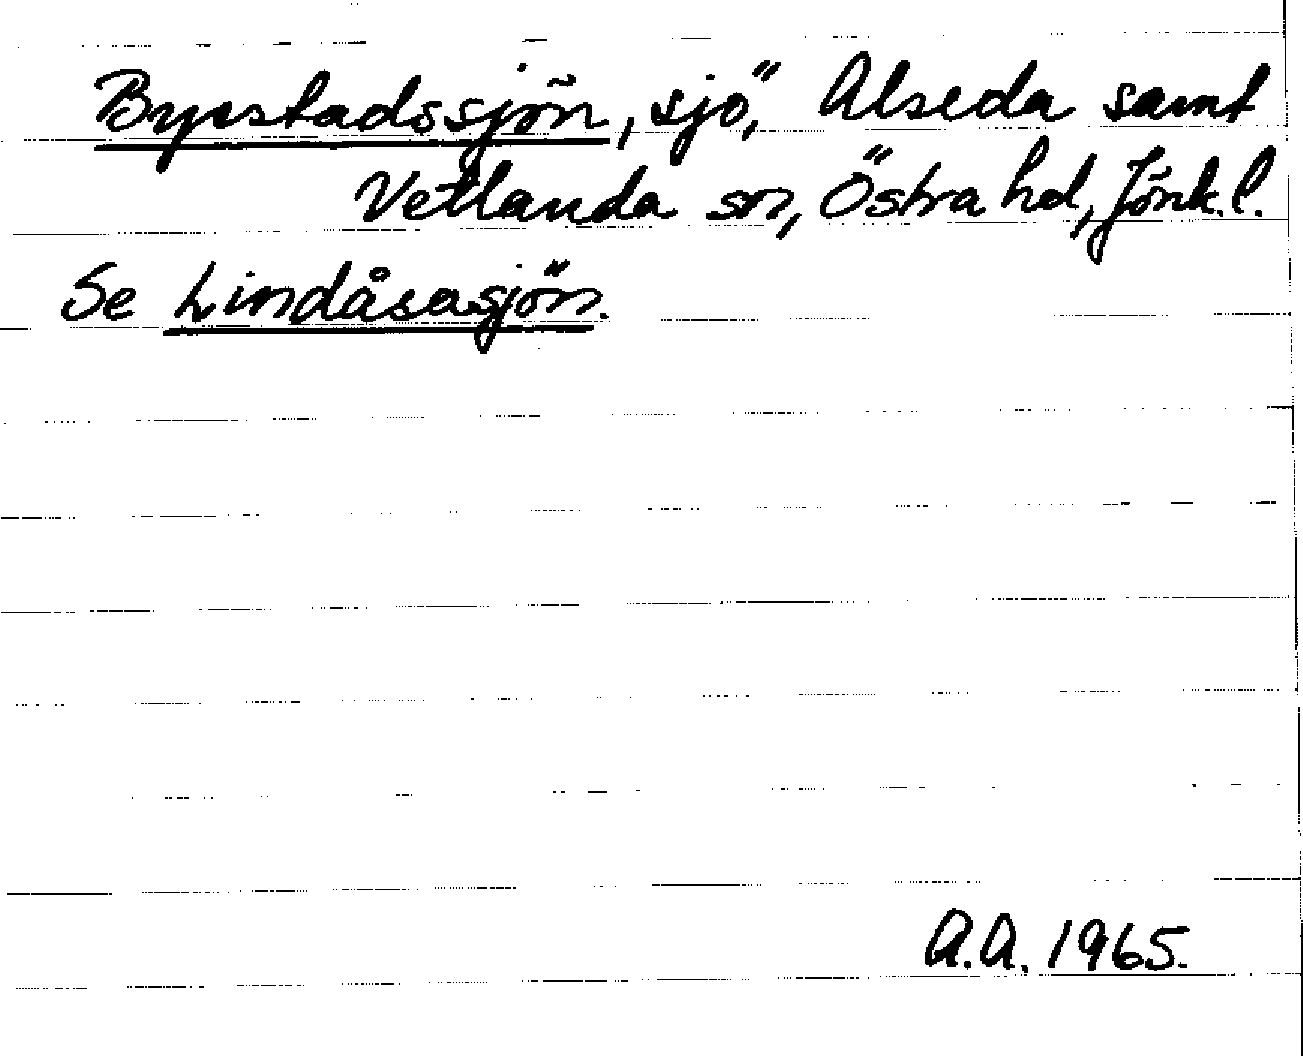 Byestadssjön, sjö, Alseda samt
Vetlanda sn, Östra hd, Jönk.l.
Se Lindåsasjön.
A.A. 1965.